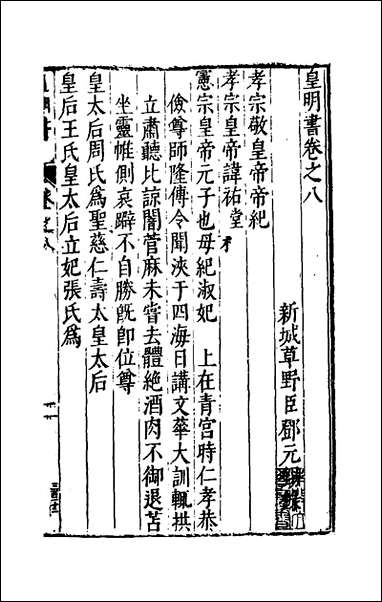 皇明書卷之八
新城草野臣鄧元
孝宗敬皇帝帝紀
孝宗皇帝諱祐堂
憲宗皇帝元子也母紀淑妃　上在青宮時仁孝恭
儉尊師隆傅令聞浹于四海日講文華大訓輒拱
立肅聽比諒闇菅麻未嘗去體絶酒肉不御退苫
坐靈帷側哀辟不自勝旣卽位尊
皇太后周氏爲聖慈仁壽太皇太后
皇后王氏皇太后立妃張氏爲